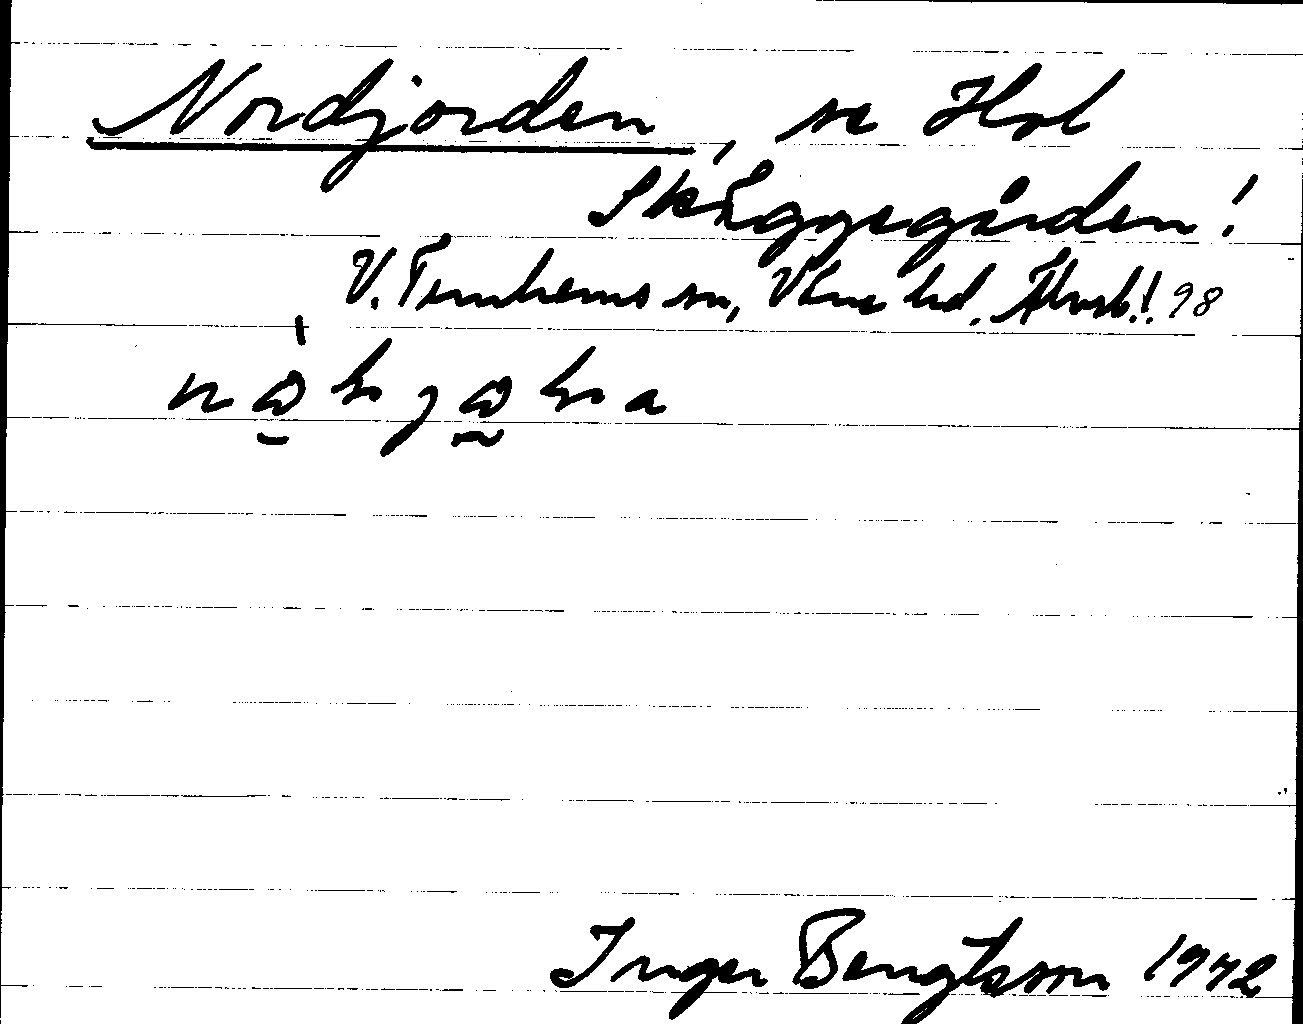 Nordjorden, se Hol
Skäggegården!
V. Tunhems sn, Väne hd. Älvsb.! 98
Inger Bengtsson 1942